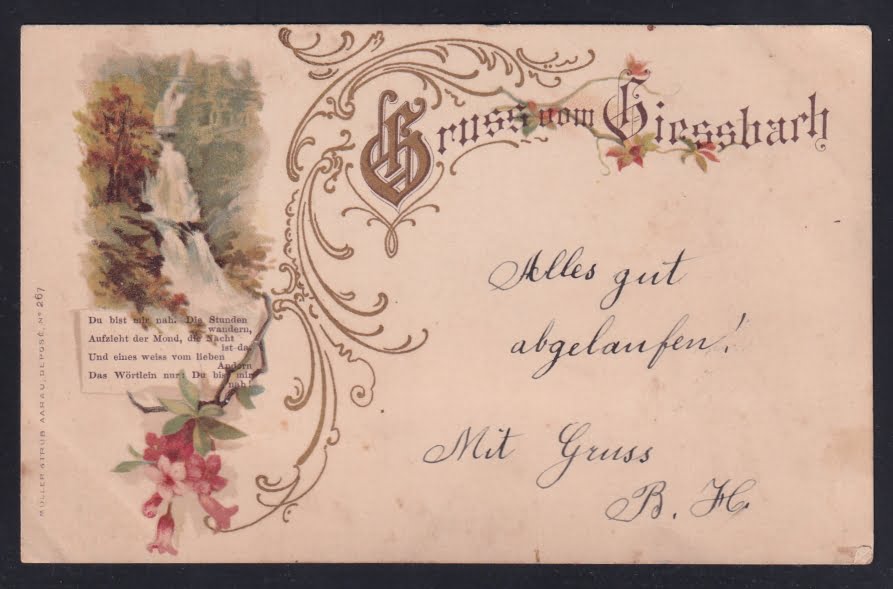 Gruss vom Giessbach
Du bist mir nah. Die Stunden
wandern,
Aufzieht der Mond, die Nacht
ist da
Und eines weiss vom lieben
Andern
Das Wörtlein nur: Du bist mir
nah!
Alles gut
abgelaufen!
Mit Gruss
B. H.
MÜLLER & TRÜB AARAU, DEPOSÉ, Nº 267